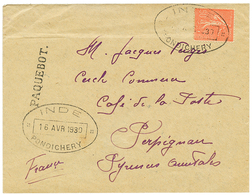 INDE
PONDICHERY
PAQUEBOT.
M. Jacques
Café de la Poste
INDE
16 AVR 1930
PONDICHERY
Perpignan
France
Pyrénées Orientales